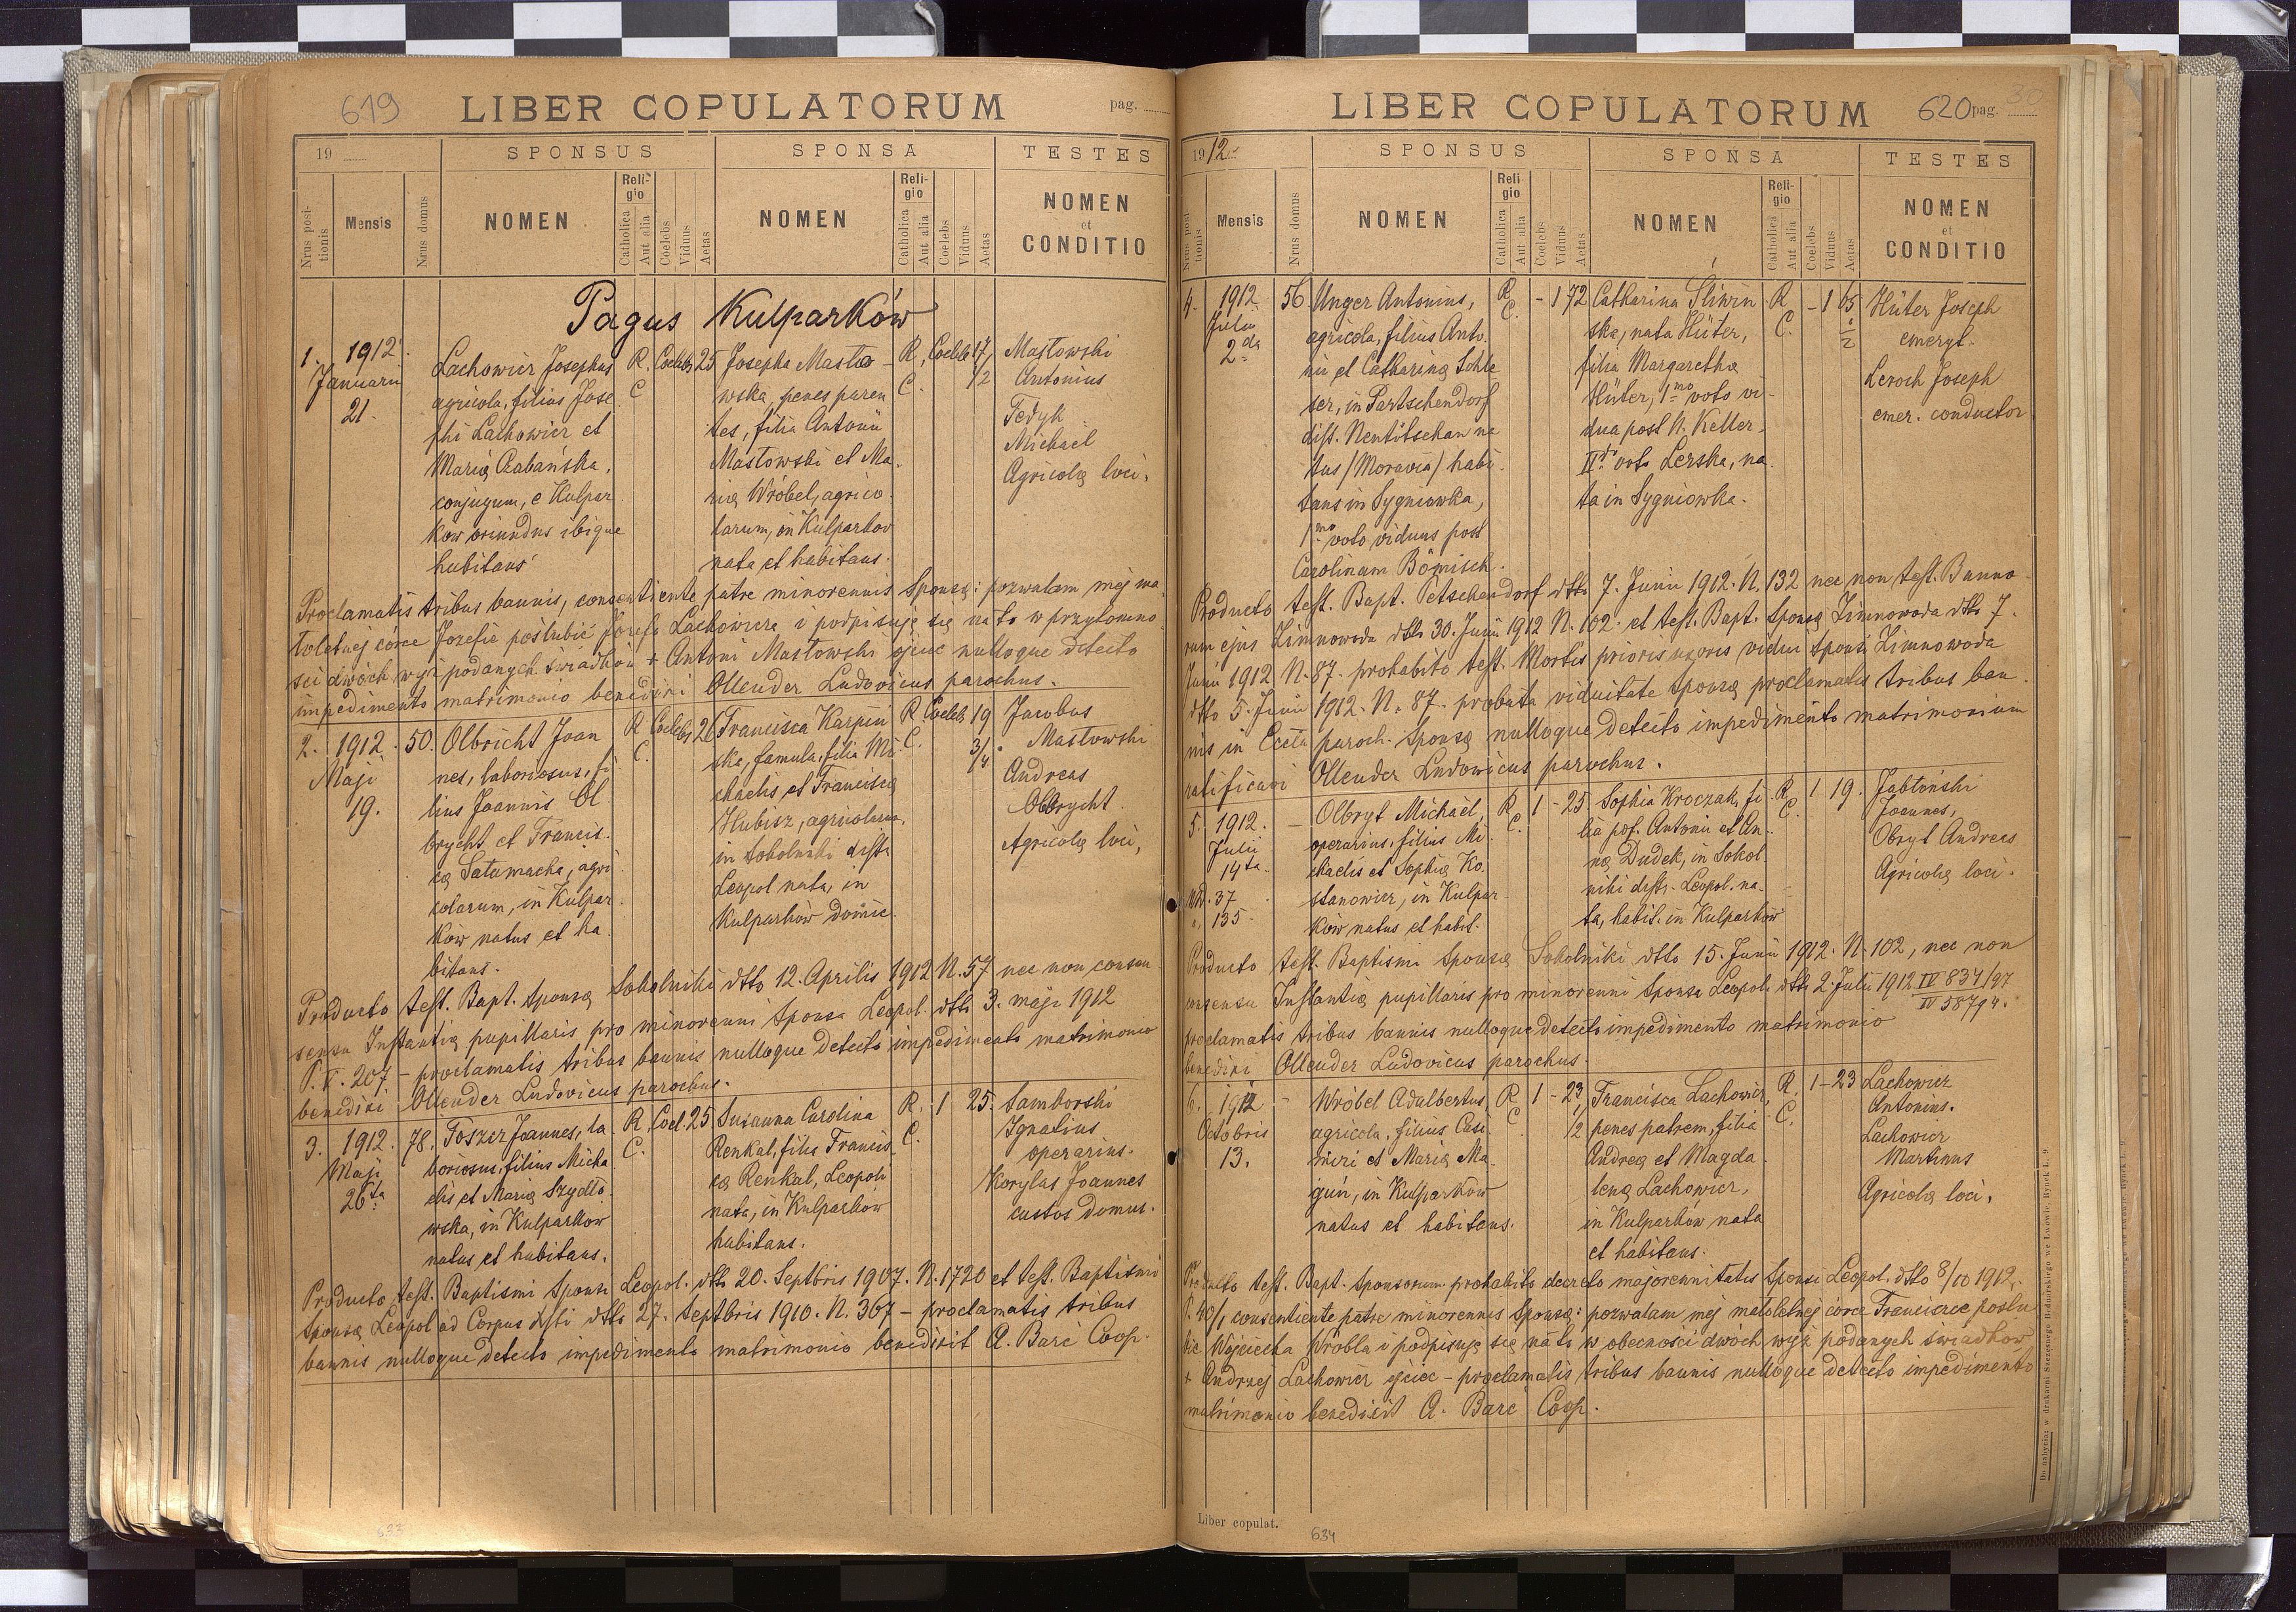 619
LIBER COPULATORUM
pag.
19
SPONSUS
SPONSA
TESTES
Nrus positionis
Mensis
Nrus domus
NOMEN
Religio
Catholica
Aut alia
Coelebs
Viduus
Aetas
NOMEN
Religio
Catholica
Aut alia
Coelebs
Viduus
Aetas
NOMEN
et
CONDITIO
Pagus Kulparków
1. 1912. Januarii 21.
Lachowicz Josephus
agricola, filius Jose
phi Lachowicz et
Mariæ
conjugum, e Kulpar
ków oriundus ibique
habitans
R. C. Coelebs 25
Josepha Masło
wska, penes paren
tes, filia Antonii
Masłowski et Ma
riæ Wróbel, agrico
larum, in Kulparkow
nata et habitans.
R. C. Coelebs 17 1/2
Masłowski
Antonius
Tedyk
Michael
Agricolæ loci.
Proclamatis tribus bannis, consentiente patre minorennis Sponsæ: pozwalam mej ma
łoletniej córce Józefie poślubić Józefa Lachowicza i podpisuję się na to w przytomno
ści dwóch wyż podanych świadków + Antoni Masłowski ojciec nulloque detecto
impedimento matrimonio benedixi Ollender Ludovicus parochus.
2. 1912. Maji 19.
50.
Olbricht Joan
nes, laboriosus, fi
lius Joannis Ol
brycht et Francis
cæ Satamacha, agri
colarum, in Kulpar
ków natus et ha
bitans.
R. C. Coelebs 26
Francisca Karpiń
ska, famula, filia Mi
chaelis et Franciscæ
Hubisz, agricolarum,
in Sokolniki distr.
Leopol nata, in
Kulparków domic.
R. C. Coelebs 19 3/4
Jacobus
Masłowski
Andreas
Olbrycht
Agricolæ loci,
Producto test. Bapt. Sponsæ Sokolniki dtto 12. Aprilis 1912 N. 57 nec non consen
sensu Instantiæ pupillaris pro minorenni Sponsa Leopol. dtto 3. maji 1912
P. V. 207 - proclamatis tribus bannis nulloque detecto impedimento matrimonio
benedixi Ollender Ludovicus parochus.
3. 1912. Maji 26ta
78.
Toszer Joannes, la
boriosus, filius Micha
elis et Mariæ Szydło
wska, in Kulparkow
natus et habitans.
R. C. Coel. 25
Susanna Carolina
Renkal, filia Francis
cæ Renkal, Leopoli
nata, in Kulparkow
habitans.
R. C. 1 25.
Samborski
Ignatius
operarius.
Korylas Joannes
custos domus.
Producto test. Baptismi Sponsi Leopol. dtto 20. Septbris 1907. N. 1720 et test. Baptismi
Sponsæ Leopol ad Corpus Xsti dtto 27. Septbris 1910. N. 367 - proclamatis tribus
bannis nulloque detecto impedimento matrimonio benedixit A. Barć Coop.
633
LIBER COPULATORUM
620 pag. 30
1912
SPONSUS
SPONSA
TESTES
Nrus positionis
Mensis
Nrus domus
NOMEN
Religio
Catholica
Aut alia
Coelebs
Viduus
Aetas
NOMEN
Religio
Catholica
Aut alia
Coelebs
Viduus
Aetas
NOMEN
et
CONDITIO
4. 1912 Julii 2da
56.
Unger Antonius,
agricola, filius Anto
nii et Catharinæ Schle
ser, in Partschendorf
dist. Neutitschan na
tus /Moravia/ habi
tans in Sygniowka,
1mo voto viduus post
Carolinam Bömisch.
R. C. - 1 72
Catharina Śliwin
ska, nata Hüter,
filia Margarethæ
Hüter, 1mo voto vi
dua post N. Keller,
IIdo voto Lerska, na
ta in Sygniowka.
R. C. - 1 65 1/2
Hüter Joseph
emeryt.
Leroch Joseph
emer. conductor
Producto test. Bapt. Petschendorf dtto 7. Junii 1912. N. 132 nec non test. Banno
rum ejus Zimnowoda dtto 30. Junii 1912 N. 102. et test. Bapt. Sponsæ Zimnowoda dtto 7.
Junii 1912 N. 87. prohabito test. Mortis prioris uxoris vidui Sponsi Zimnowoda
dtto 5. Junii 1912. N. 87. probata viduitate Sponsæ proclamatis tribus ban
nis in Eccla paroch. Sponsæ nulloque detecto impedimento matrimonium
ratificavi Ollender Ludowicus parochus.
5. 1912. Julii 14ta.
ND. 37
" 135
Olbryt Michael,
operarius, filius Mi
chaelis et Sophiæ Ko
stanowicz, in Kulpar
ków natus et habit.
R. C. 1 - 25
Sophia Kroczak, fi
lia pof. Antonii et An
næ Dudek, in Sokol
niki distr. Leopol. na
ta, habit. in Kulparków
R. C. 1 19.
Jabłoński
Joannes,
Obryt Andreas
Agricolæ loci.
Producto test. Baptismi Sponsæ Sokolniki dtto 15. Junii 1912. N. 102, nec non
consensu Instantiæ pupillaris pro minorenni Sponsa Leopoli dtto 2. Julii 1912 IV 834/97
IV 587 94.
proclamatis tribus bannis nulloque detecto impedimento matrimonio
benedixi Ollender Ludovicus parochus.
6. 1912 Octobris 13.
Wróbel Adalbertus,
agricola, filius Casi
miri et Mariæ Ma
guń, in Kulparków
natus et habitans.
R. C. 1 - 23 1/2
Francisca Lachowicz,
penes patrem, filia
Andreæ et Magda
lenæ Lachowicz,
in Kulparków nata
et habitans.
R. C. 1 - 23
Lachowicz
Antonius.
Lachowicz
Martinus
Agricolæ loci.
Producto test. Bapt. Sponsorum prohabito decreto majorennitatis Sponsi Leopol. dtto 8/10 1912.
P. 40/1 consentiente patre minorennis Sponsæ: pozwalam mej małoletniej córce Franciszce poślu
bić Wojciecha Wróbla i podpisuję się na to w obecności dwóch wyż podanych świadków
+ Andrzej Lachowicz ojciec - proclamatis tribus bannis nulloque detecto impedimento
matrimonio benedixit A. Barć Coop.
Liber copulat.
634
Do nabycia: w drukarni Szczęsnego Bednarskiego we Lwowie, Rynek L. 9.